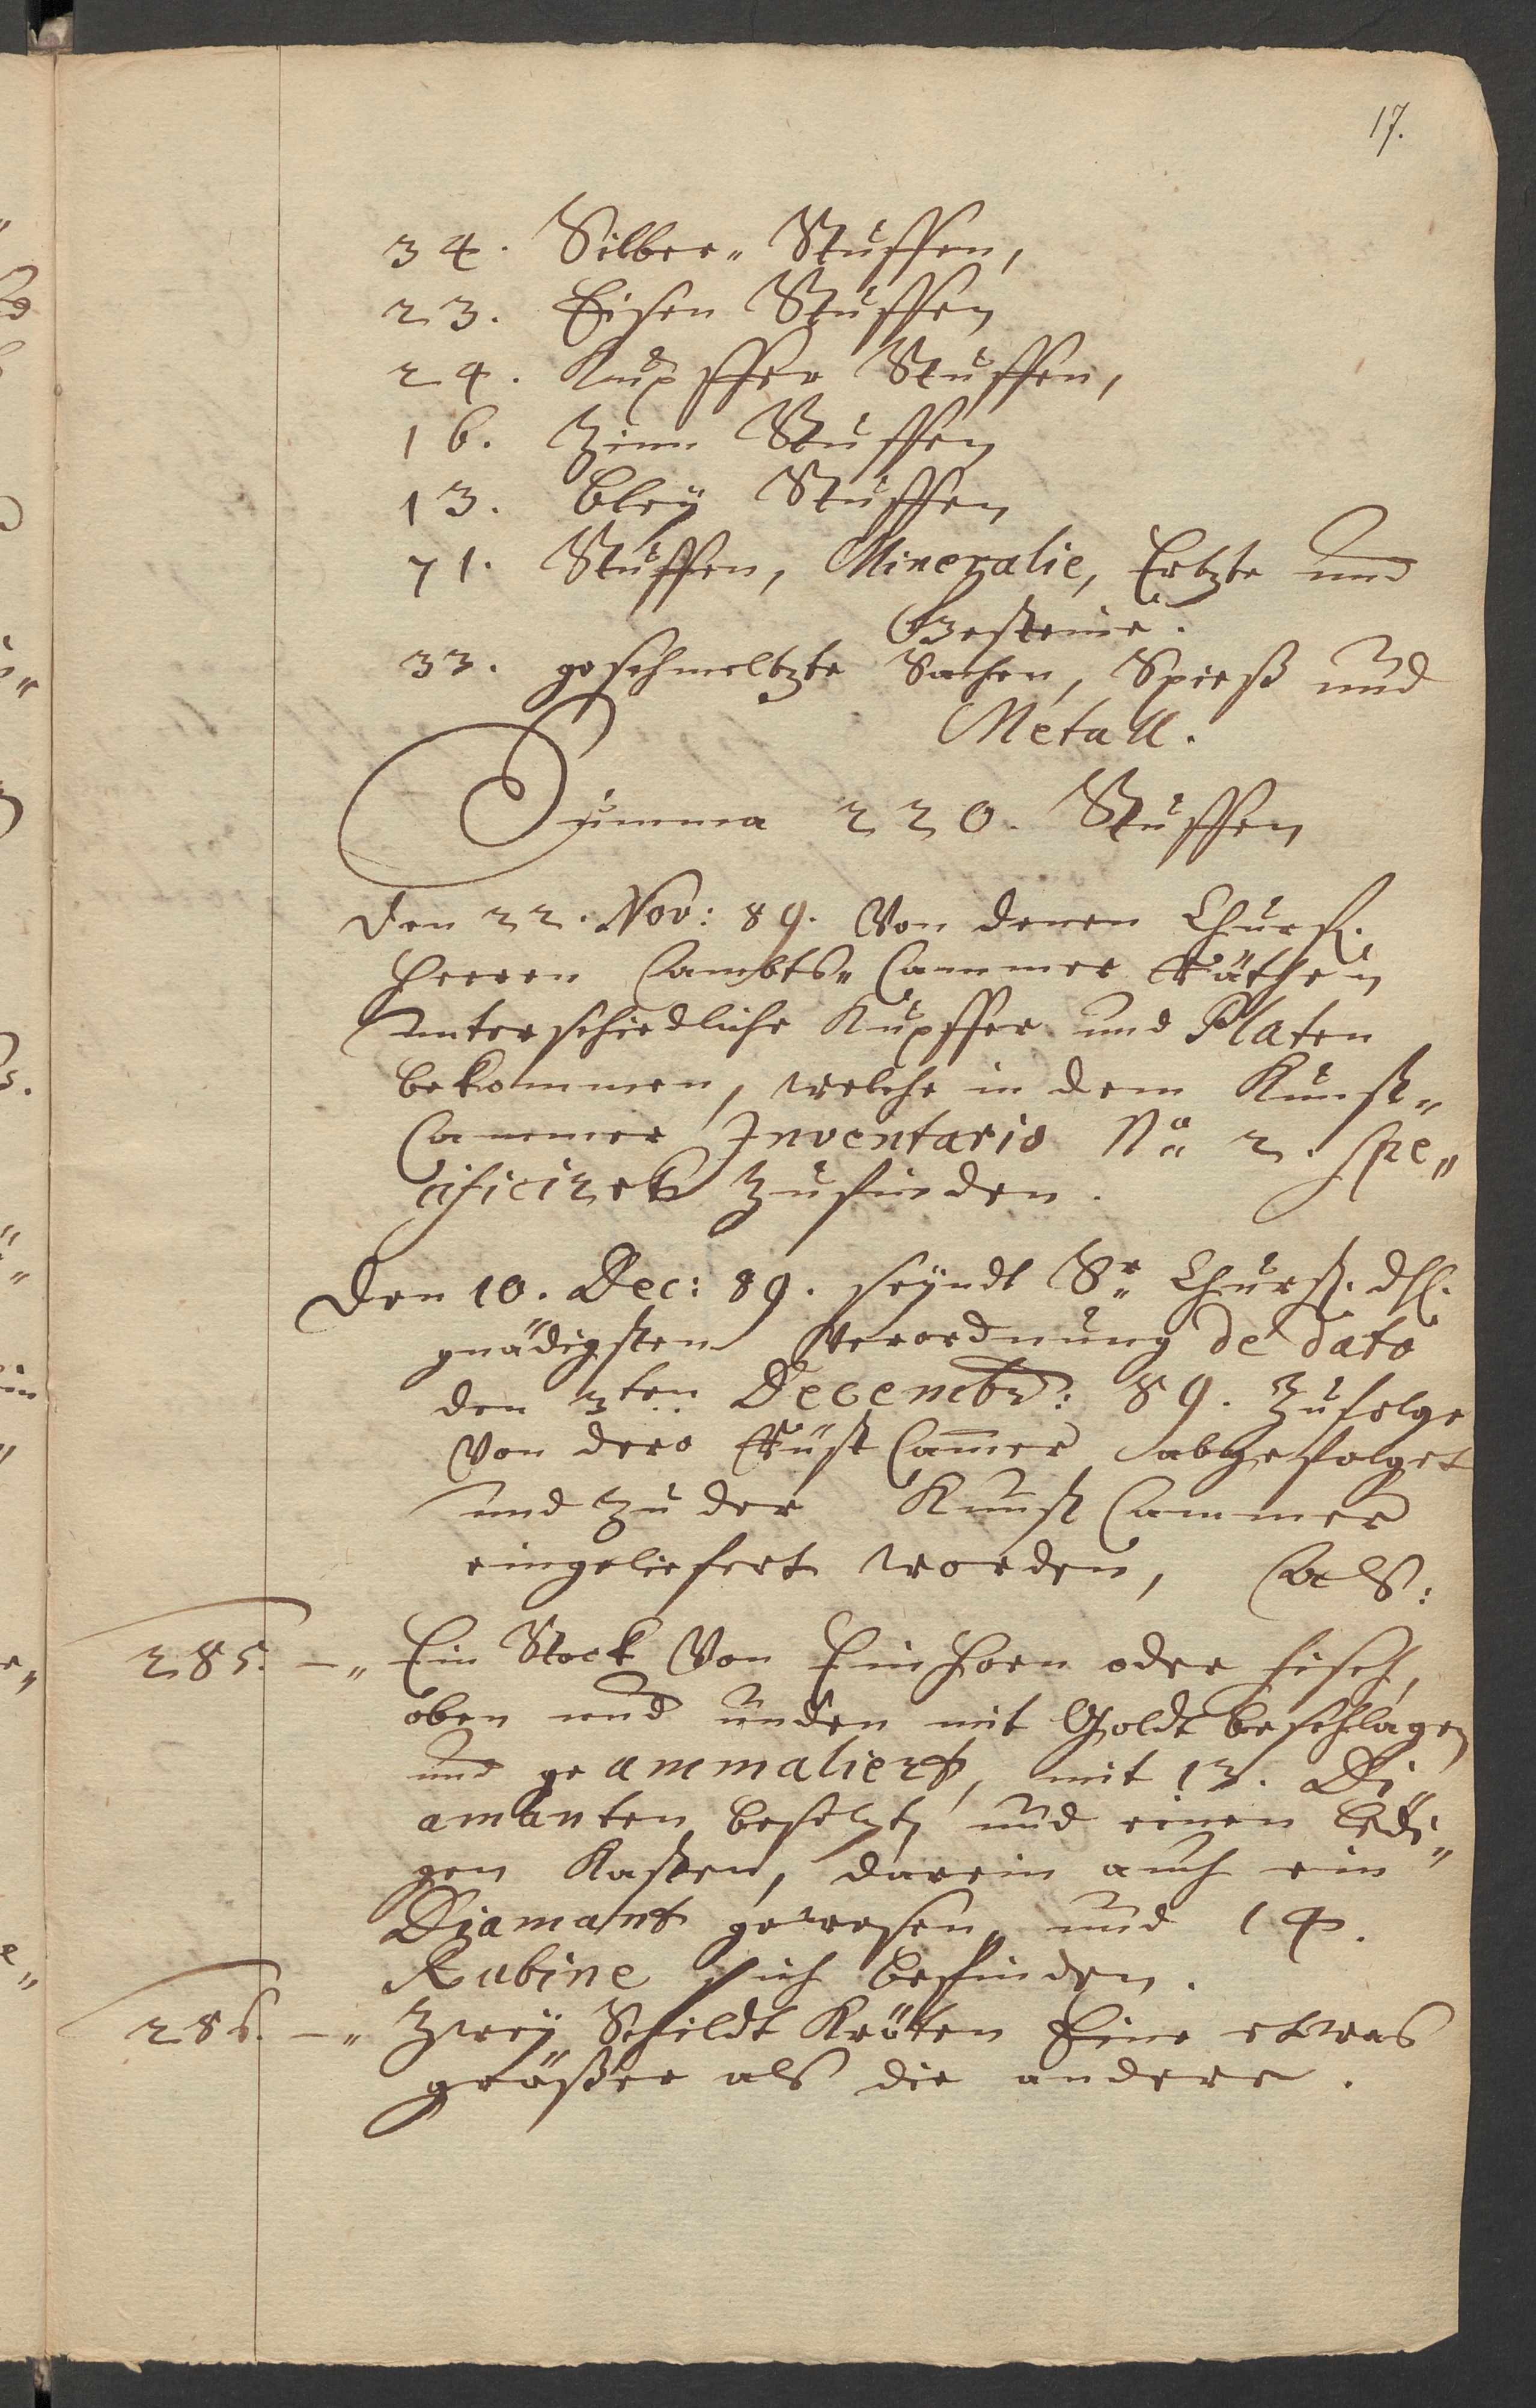 17.
34. Silber„ Stuffen,
23. Eisen Stuffen
24. Kupffer Stuffen,
16. Zinn Stuffen
13. Bley Stuffen
71. Stuffen, Mineralie, Ertzte und
Gesteine.
33. geschmeltzte Sachen, Spieß und
Metall.
Summa 220. Stuffen
Den 22. Nov: 89. Von denen Churf.
Herren Ambts„ Cammer Räthen
unterschiedliche Kupffer und Platen
bekommen, welche in dem Kunst„
Cammer Inventario No 2. spe„
cificiret zufinden.
Den 10. Dec: 89. seyndt Sr Churf. dl.
gnädigsten Verordnung de dato
den 3ten Decembr: 89. Zufolge
Von dero Rüst Cam̄er abgefolget
und zu der Kunst Cammer
eingeliefert worden, Als:
285. —„ Ein Stock Von Einhorn oder fisch,
oben und unden mit Goldt beschlagen
und ge ammaliert, mit 13. Di„
amanten besetzt, und einen ledi„
gen Kasten, darein auch ein
Diamant gewesen, und 14.
Rubine sich befinden.
286. —„ Zwey Schildt Kröten Eine etwas
größer als die andere.